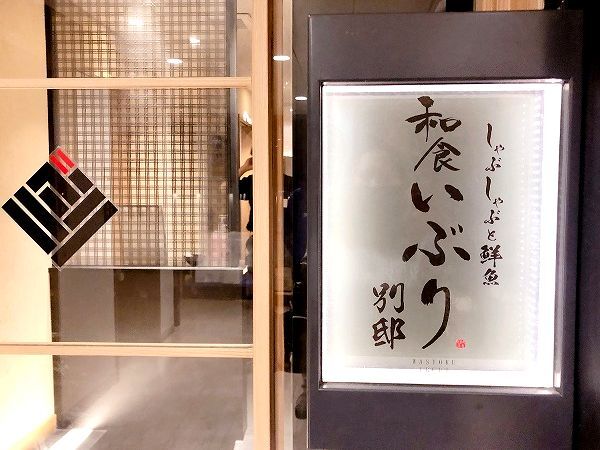 しゃぶしゃぶと鮮魚
和食いぶり
別邸
WASHOKU